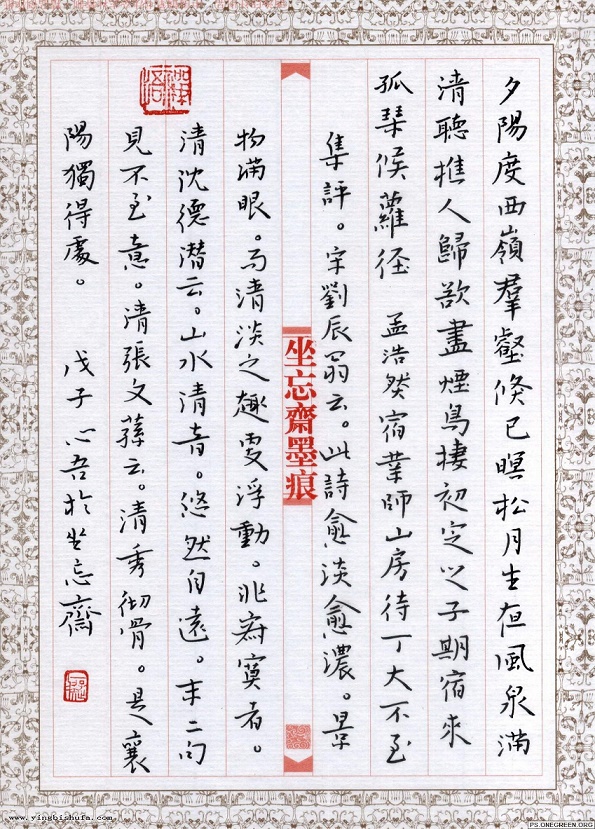 夕陽度西嶺羣壑倏已暝松月生夜風泉滿
清聽樵人歸欲盡煙鳥棲初定之子期宿來
孤琴候蘿徑 孟浩然宿業師山房待丁大不至
集評。宋劉辰翁云。此詩愈淡愈濃。景
坐忘齋墨痕
物滿眼。而清淡之趣更浮動。非寂寞者。
清沈德潛云。山水清音。悠然自遠。末二句
見不至意。清張文蓀云。清秀徹骨。是襄
陽獨得處。 戊子心吾於坐忘齋
www.yingbishufa.com
PS.ONEGREEN.ORG